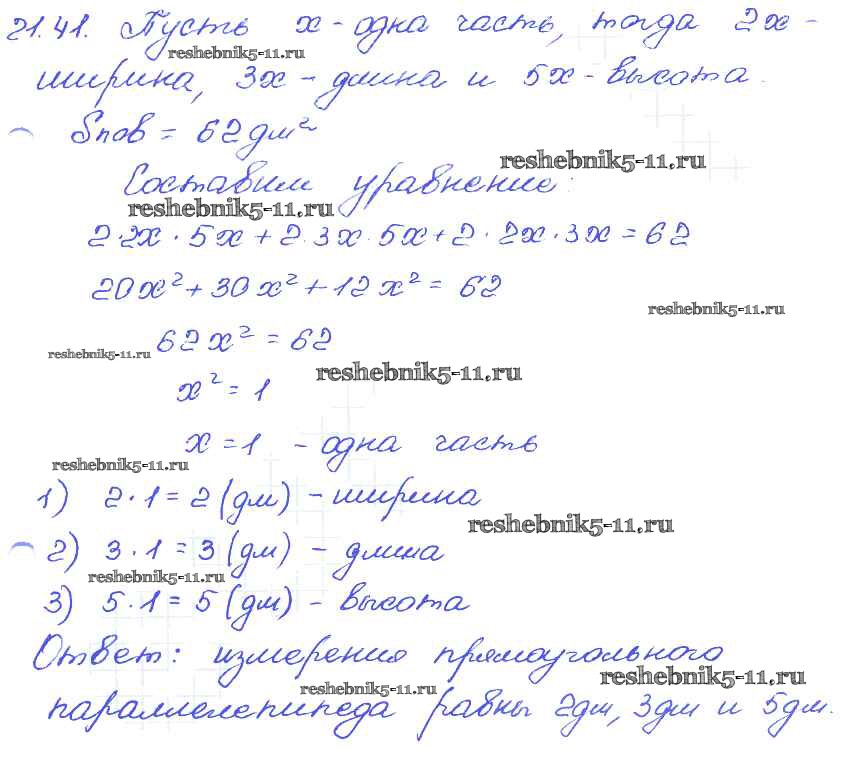 21.41. Пусть x - одна часть, тогда 2x -
reshebnik5-11.ru
ширина, 3x - длина и 5x - высота.
Sпов = 62 дм²
reshebnik5-11.ru
Составим уравнение:
reshebnik5-11.ru
2·2x·5x+2·3x·5x+2·2x·3x=62
20x²+30x²+12x²=62
reshebnik5-11.ru
62x²=62
reshebnik5-11.ru
reshebnik5-11.ru
x²=1
x=1 - одна часть
reshebnik5-11.ru
1) 2·1=2 (дм) - ширина
reshebnik5-11.ru
2) 3·1=3 (дм) - длина
reshebnik5-11.ru
3) 5·1=5 (дм) - высота
Ответ: измерения прямоугольного
reshebnik5-11.ru
reshebnik5-11.ru
параллелепипеда равны 2дм, 3дм и 5дм.